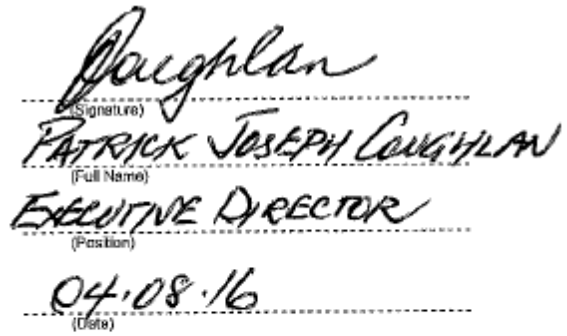 Coughlan
(Signature)
PATRICK JOSEPH COUGHLAN
(Full Name)
EXECUTIVE DIRECTOR
(Position)
04.08.16
(Date)